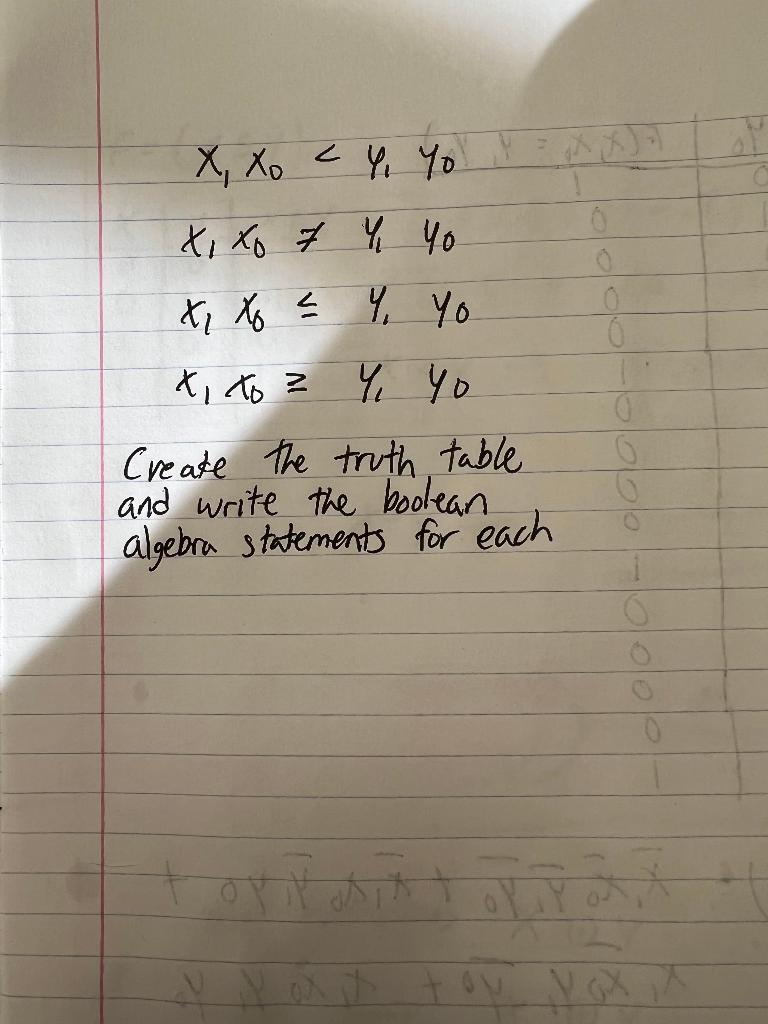 x₁ x₀ < y₁ y₀
x₁ x₀ ≠ y₁ y₀
x₁ x₀ ≤ y₁ y₀
x₁ x₀ ≥ y₁ y₀
Create the truth table
and write the boolean
algebra statements for each